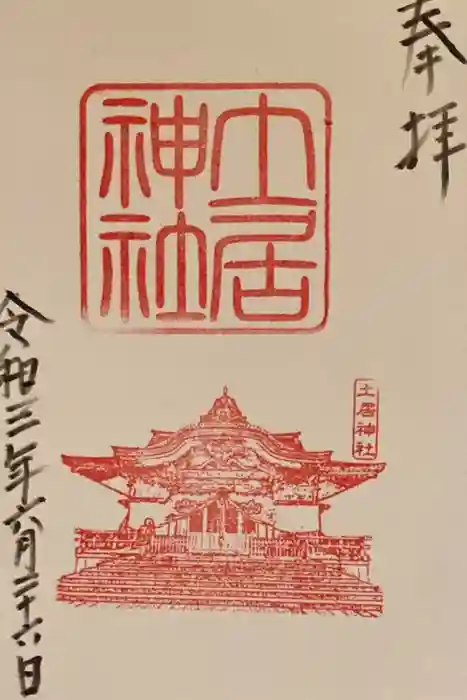 奉拝
土居神社
土居神社
令和三年六月二十六日